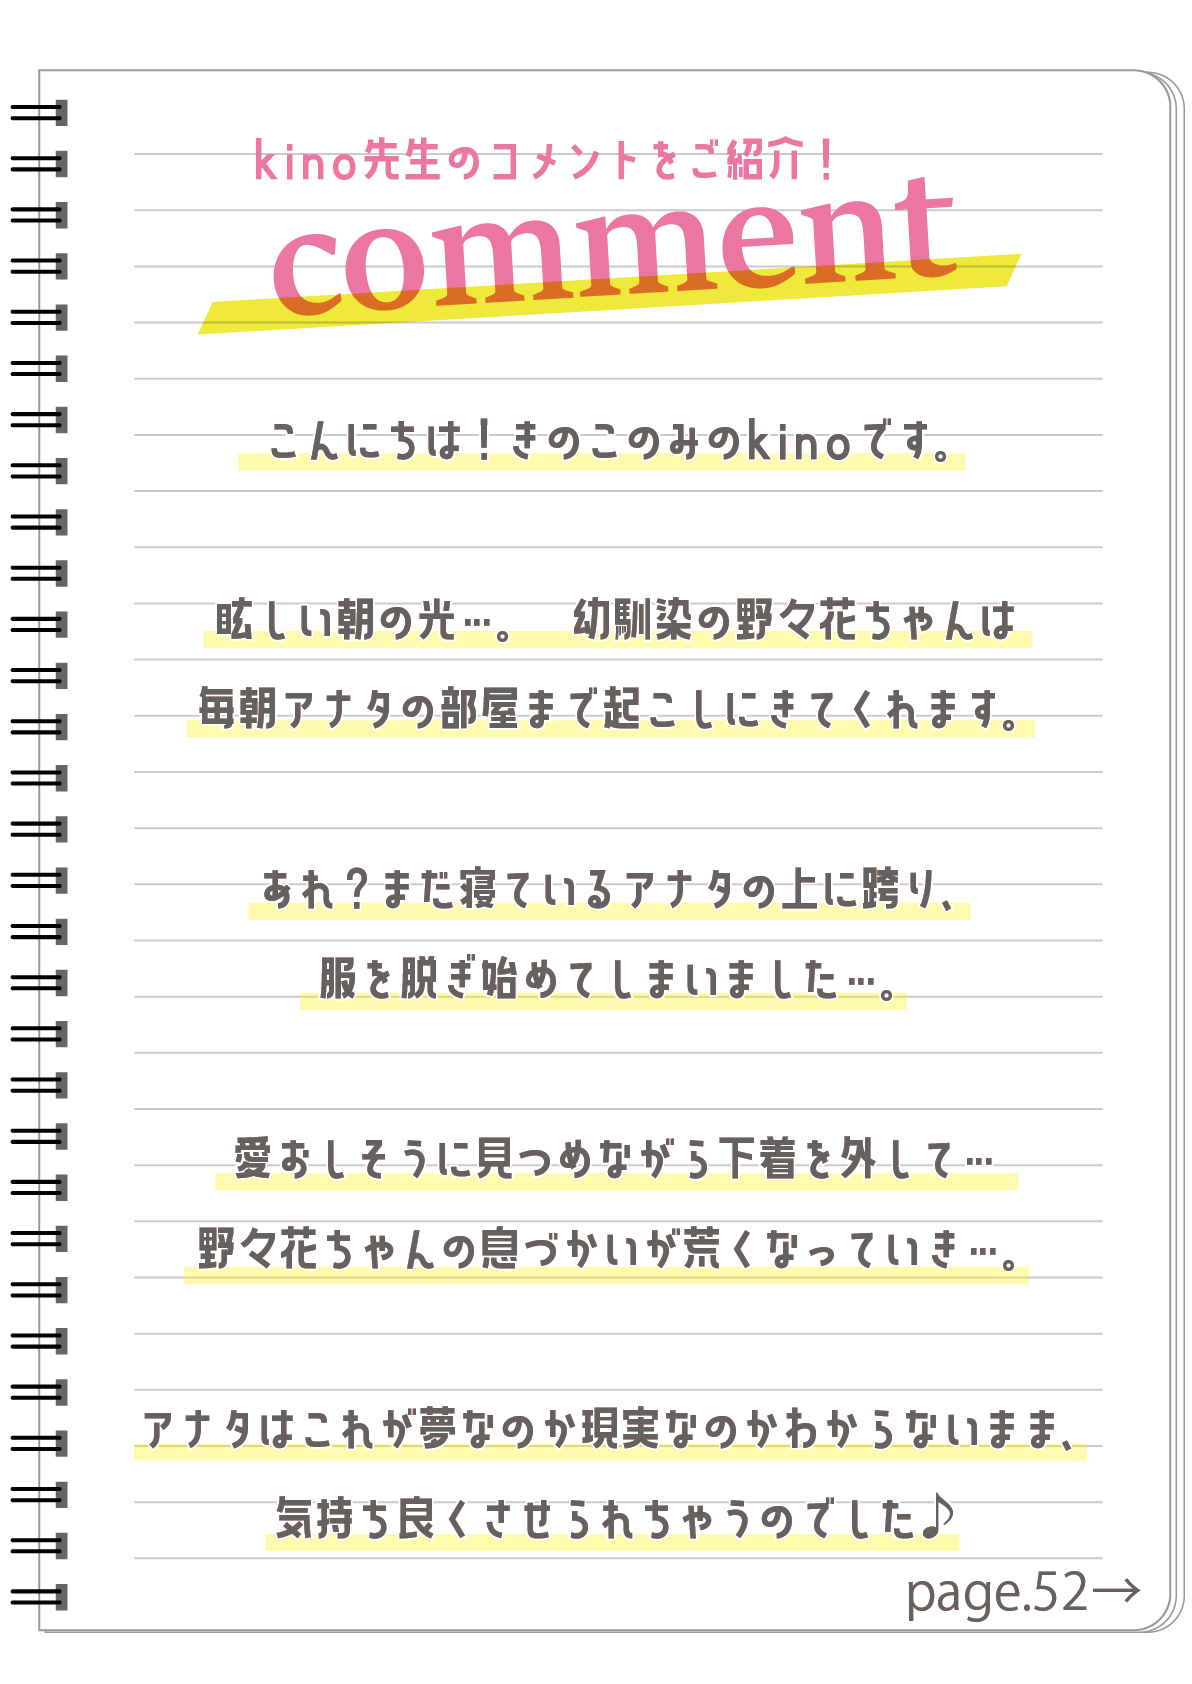 kino先生のコメントをご紹介！
comment
こんにちは！きのこのみのkinoです。
眩しい朝の光…。　幼馴染の野々花ちゃんは
毎朝アナタの部屋まで起こしにきてくれます。
あれ？まだ寝ているアナタの上に跨り、
服を脱ぎ始めてしまいました…。
愛おしそうに見つめながら下着を外して…
野々花ちゃんの息づかいが荒くなっていき…。
アナタはこれが夢なのか現実なのかわからないまま、
気持ち良くさせられちゃうのでした♪
page.52→